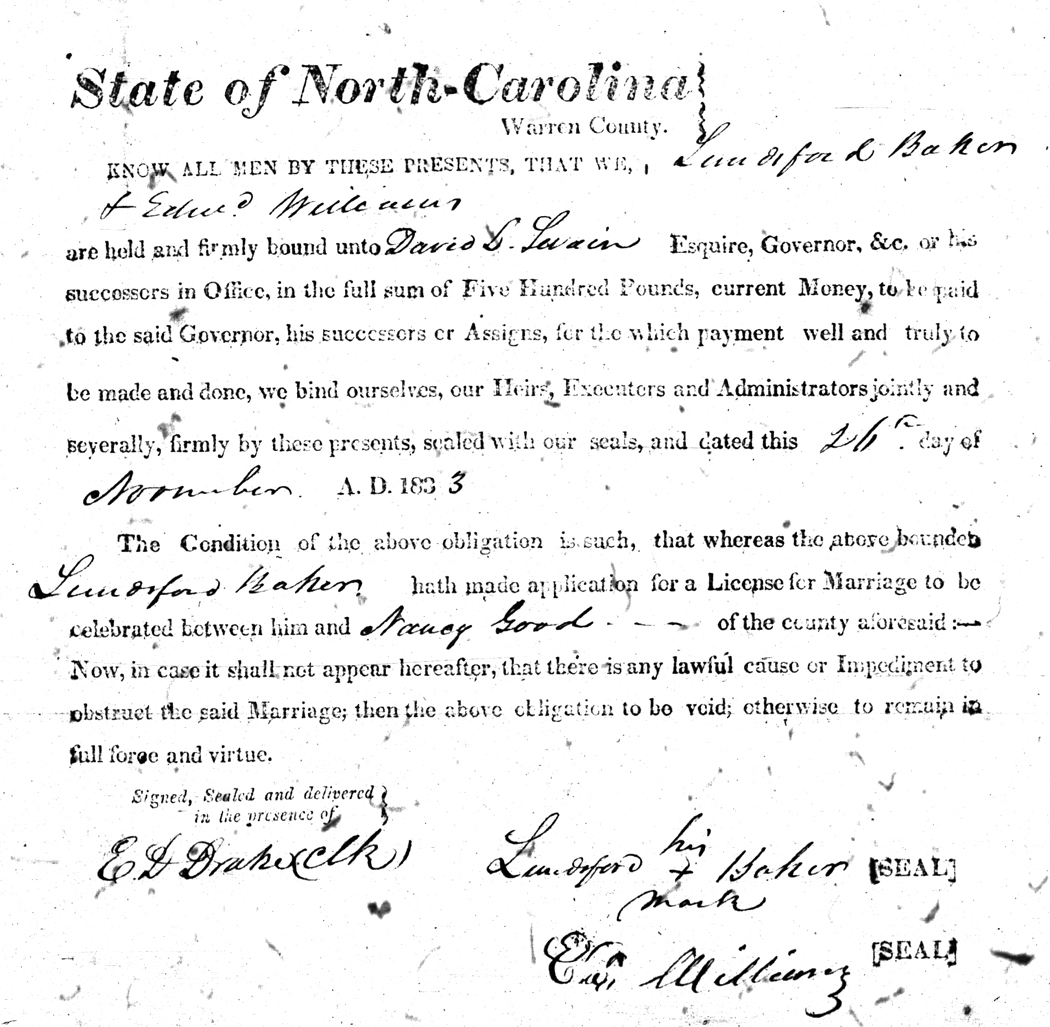 State of North-Carolina
Warren County.
KNOW ALL MEN BY THESE PRESENTS, THAT WE, Lundsford Baker
& Edwd Williams
are held and firmly bound unto David L. Swain Esquire, Governor, &c. or his
successors in Office, in the full sum of Five Hundred Pounds, current Money, to be paid
to the said Governor, his successors or Assigns, for the which payment well and truly to
be made and done, we bind ourselves, our Heirs, Executors and Administrators jointly and
severally, firmly by these presents, sealed with our seals, and dated this 26th. day of
November A. D. 1833
The Condition of the above obligation is such, that whereas the above bounden
Lundsford Baker hath made application for a License for Marriage to be
celebrated between him and Nancy Good - - - of the county aforesaid:—
Now, in case it shall not appear hereafter, that there is any lawful cause or Impediment to
obstruct the said Marriage; then the above obligation to be void; otherwise to remain in
full force and virtue.
Signed, Sealed and delivered
in the presence of
E D Drake (Clk)
his
Lundsford + Baker [SEAL]
mark
Williams [SEAL]